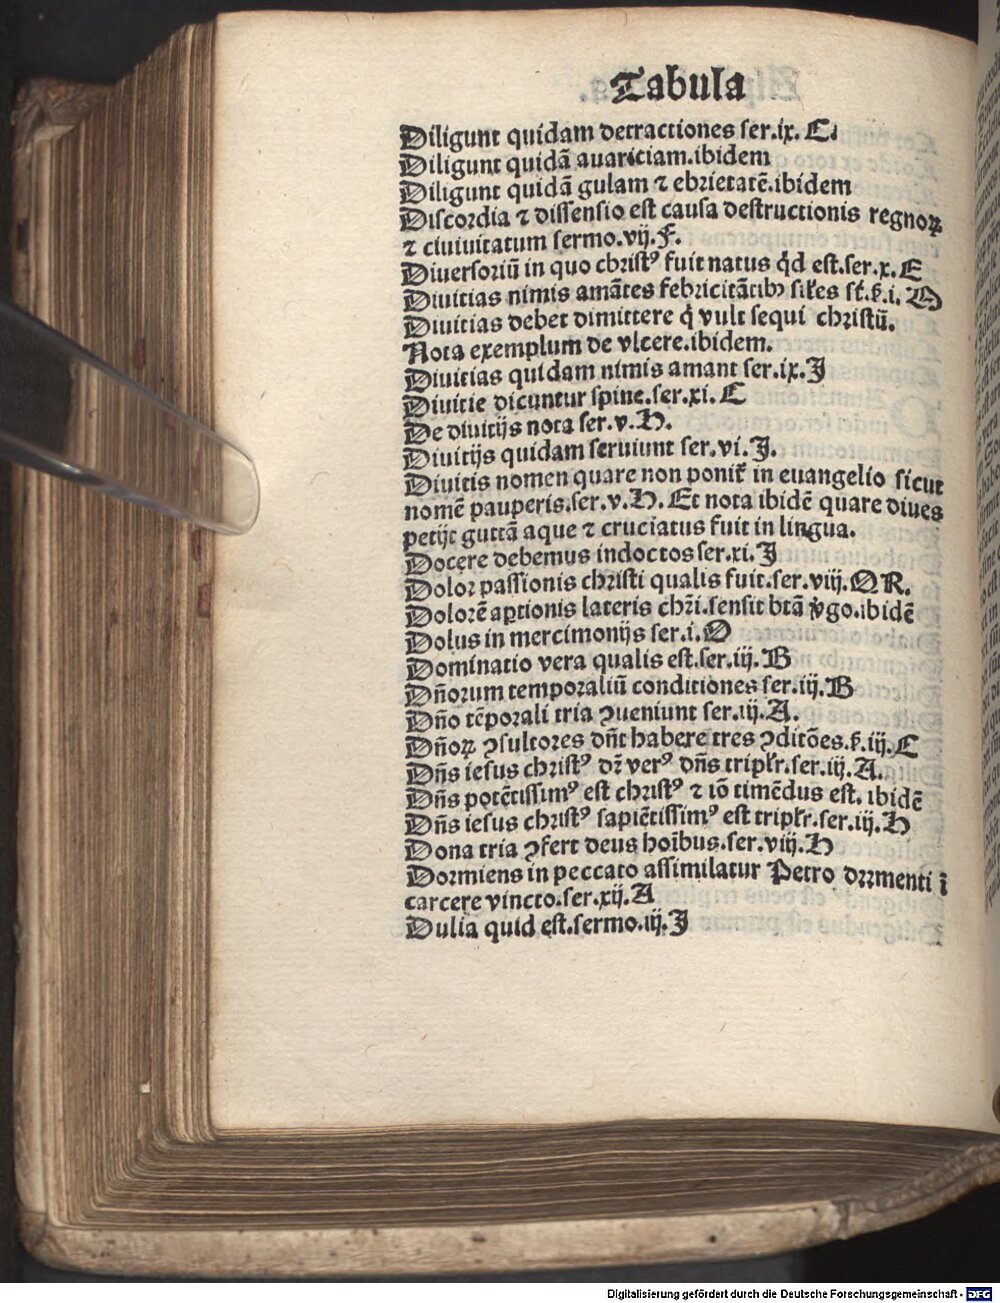 Tabula
Diligunt quidam detractiones ser.ix. C.
Diligunt quidā auariciam.ibidem
Diligunt quidā gulam ⁊ ebrietatē.ibidem
Discordia ⁊ dissensio est causa destructionis regnoꝝ
⁊ ciuiuitatum sermo.vij.F.
Diuersoriū in quo christꝰ fuit natus q̇d est.ser.x.E
Diuitias nimis amātes febricitātibꝫ
Diuitias debet dimittere q̇ vult sequi christū.
Nota exemplum de vlcere.ibidem.
Diuitias quidam nimis amant ser.ix.J
Diuitie dicuntur spine.ser.xi.C
De diuitijs nota ser.v.H.
Diuitijs quidam seruiunt ser.vi.J.
Diuitis nomen quare non ponit̄ in euangelio sicut
nomē pauperis.ser.v.H. Et nota ibidē quare diues
petijt guttā aque ⁊ cruciatus fuit in lingua.
Docere debemus indoctos ser.xi.J
Dolor passionis christi qualis fuit.ser.viij.Q R.
Dolorē aꝑtionis lateris chr̄i.sensit btā v̇go.ibidē
Dolus in mercimonijs ser.i.O
Dominatio vera qualis est.ser.iij.B
Dn̄orum temporaliū conditiones ser.iij.B
Dn̄o tēporali tria ꝯueniunt ser.iij.A.
Dn̄oꝝ ꝯsultores dn̄t habere tres ꝯditōes.s̄.iij.C
Dn̄s iesus christꝰ dr̄ verꝰ dn̄s tripl̄r.ser.iij.A.
Dn̄s potētissimꝰ est christꝰ ⁊ iō timēdus est. ibidē
Dn̄s iesus christꝰ sapiētissimꝰ est tripl̄r.ser.iij.H
Dona tria ꝯfert deus hoībus.ser.viij.H
Dormiens in peccato assimilatur Petro dormenti ī
carcere vincto.ser.xij.A
Dulia quid est.sermo.iij.J
Digitalisierung gefördert durch die Deutsche Forschungsgemeinschaft - DFG